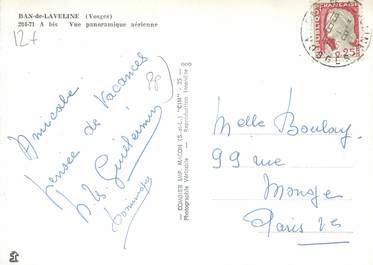 BAN-de-LAVELINE (Vosges)
204-71 A bis Vue panoramique aérienne
12f
Amicale
Pensée de Vacances
Guillemin
COMBIER IMP. MACON (S.-et-L.) "CIM"
Photographie Véritable - Reproduction Interdite
REPUBLIQUE FRANÇAISE
0.25
VOSGES
Melle Boulay
99 rue
Monge
Paris Ve